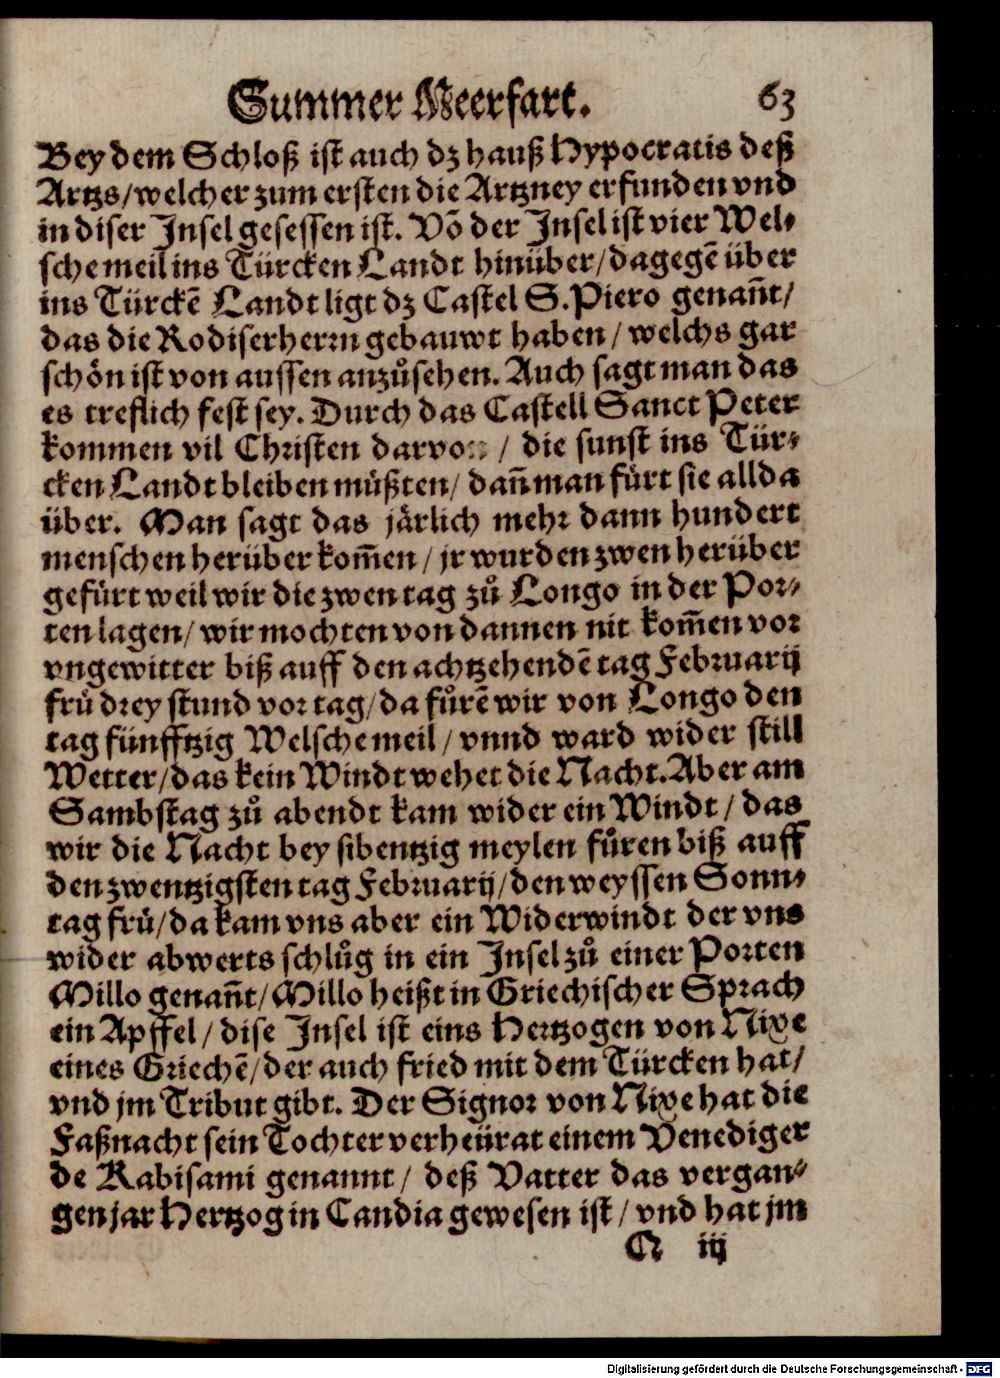 Summer Meerfart. 63
Bey dem Schloß ist auch dz hauß Hypocratis deß
Artzs/welcher zum ersten die Artzney erfunden vnd
in diser Insel gesessen ist. Võ der Insel ist vier Wel⸗
sche meil ins Türcken Landt hinüber/dagegẽ über
ins Türckẽ Landt ligt dz Castel S. Piero genañt/
das die Rodiserherrn gebauwt haben/welchs gar
schön ist von aussen anzůsehen. Auch sagt man das
es treflich fest sey. Durch das Castell Sanct Peter
kommen vil Christen darvon/ die sunst ins Tür⸗
cken Landt bleiben müßten/ dañ man fürt sie allda
über. Man sagt das järlich mehr dann hundert
menschen herüber kom̃en/jr wurden zwen herüber
gefürt weil wir die zwen tag zů Longo in der Por⸗
ten lagen/wir mochten von dannen nit kom̃en vor
vngewitter biß auff den achtzehendẽ tag Februarij
frü drey stund vor tag/da fůrẽ wir von Longo den
tag fünfftzig Welsche meil/vnnd ward wider still
Wetter/das kein Windt wehet die Nacht. Aber am
Sambstag zů abendt kam wider ein Windt/das
wir die Nacht bey sibentzig meylen fůren biß auff
den zwentzigsten tag Februarij/den weyssen Sonn⸗
tag frü/da kam vns aber ein Widerwindt der vns
wider abwerts schlůg in ein Insel zů einer Porten
Millo genañt/Millo heißt in Griechischer Sprach
ein Apffel/dise Insel ist eins Hertzogen von Nixe
eines Griechẽ/der auch fried mit dem Türcken hat/
vnd jm Tribut gibt. Der Signor von Nixe hat die
Faßnacht sein Tochter verheürat einem Venediger
de Rabisami genannt/ deß Vatter das vergan⸗
gen jar Hertzog in Candia gewesen ist/vnd hat jm
Q iij
Digitalisierung gefördert durch die Deutsche Forschungsgemeinschaft - DFG